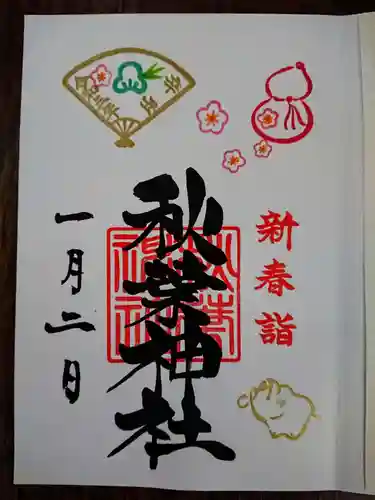 新春詣
秋葉神社
一月二日